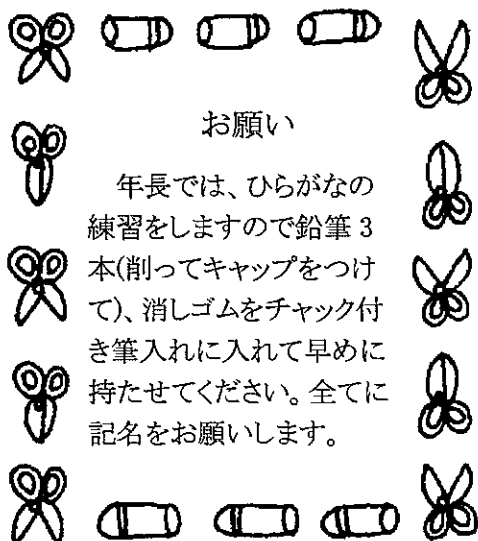 お願い
　年長では、ひらがなの
練習をしますので鉛筆3
本(削ってキャップをつけ
て)、消しゴムをチャック付
き筆入れに入れて早めに
持たせてください。全てに
記名をお願いします。